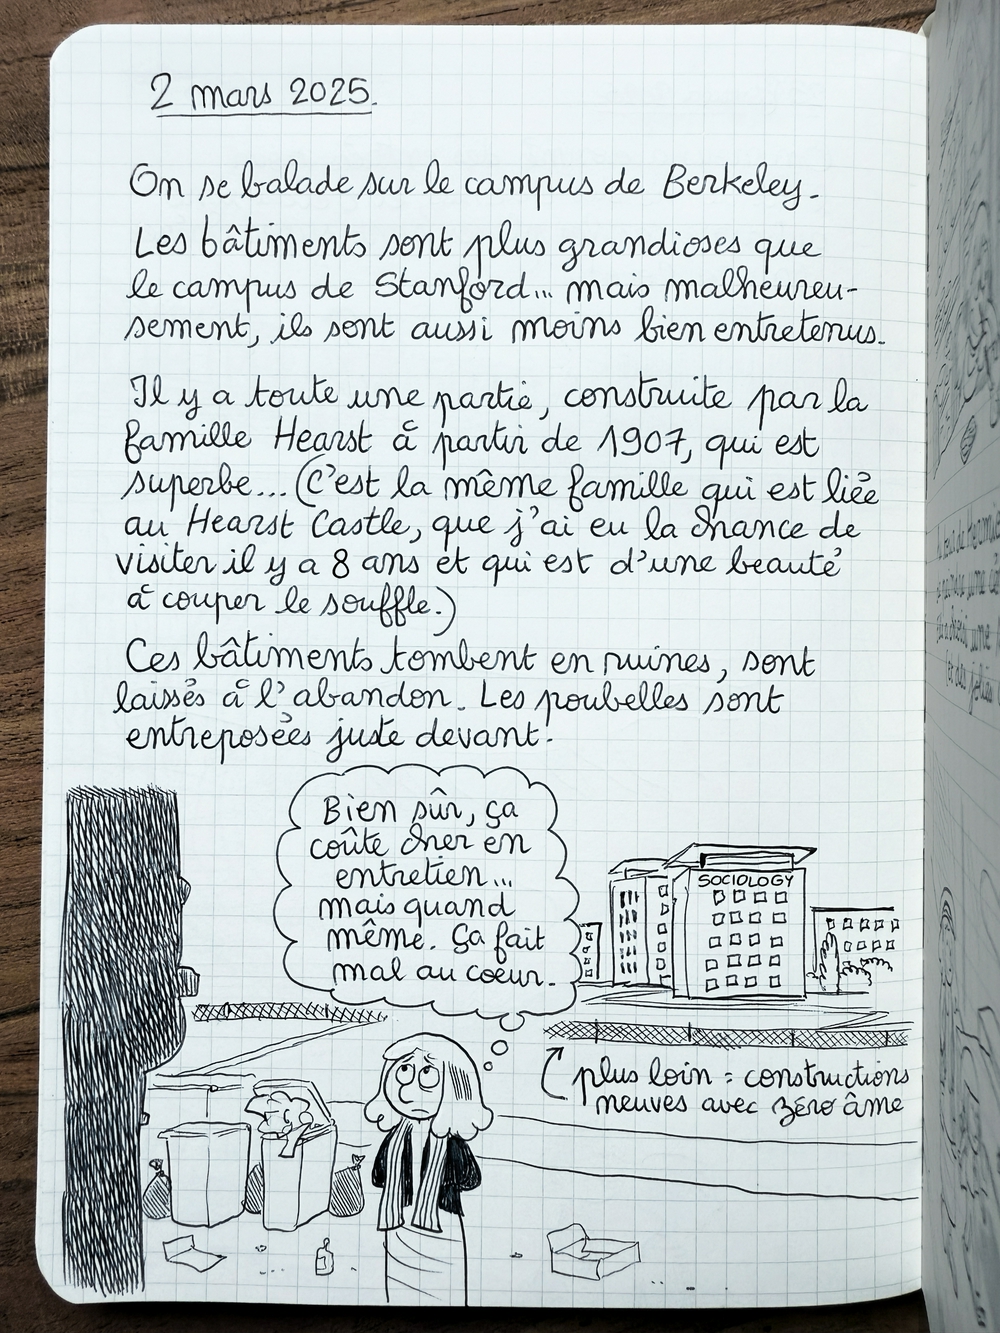 2 mars 2025.
On se balade sur le campus de Berkeley.
Les bâtiments sont plus grandioses que
le campus de Stanford... mais malheureu-
sement, ils sont aussi moins bien entretenus.
Il y a toute une partie, construite par la
famille Hearst à partir de 1907, qui est
superbe... (C'est la même famille qui est liée
au Hearst Castle, que j'ai eu la chance de
visiter il y a 8 ans et qui est d'une beauté
à couper le souffle.)
Ces bâtiments tombent en ruines, sont
laissés à l'abandon. Les poubelles sont
entreposées juste devant.
Bien sûr, ça
coûte cher en
entretien...
mais quand
même. Ça fait
mal au coeur.
SOCIOLOGY
plus loin : constructions
neuves avec zéro âme